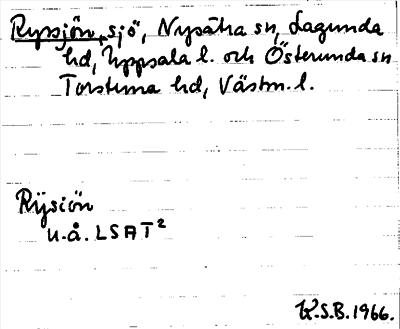 Rysjön, sjö, Nysätra sn, Lagunda
hd, Uppsala l. och Österunda sn
Torstuna hd, Västm. l.
Rÿsiön
u.å. LSAT²
K.S.B. 1966.